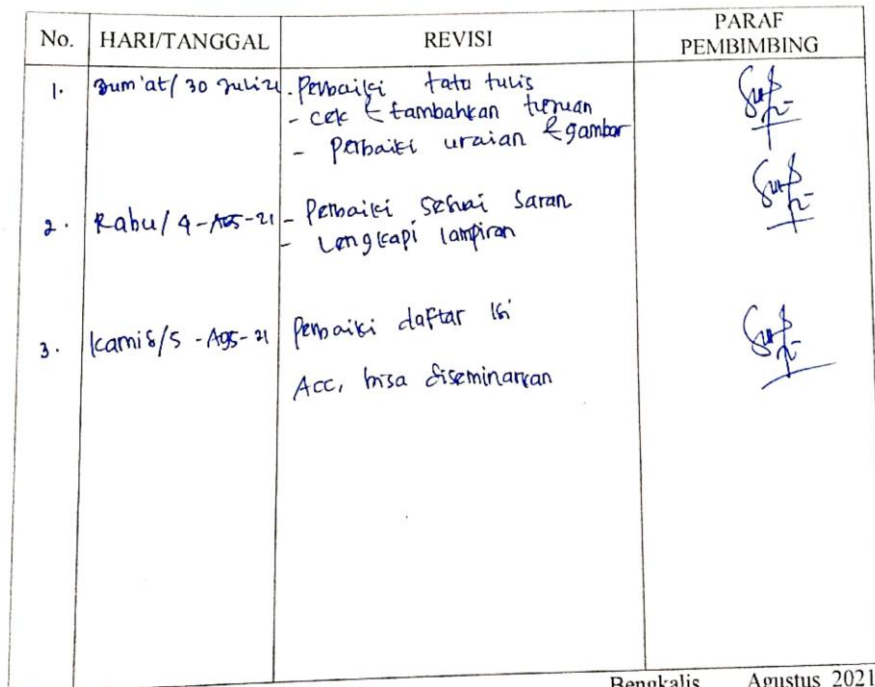 No. HARI/TANGGAL REVISI PARAF PEMBIMBING
1. Jum'at/ 30 Juli 21 - Perbaiki tata tulis
- cek & tambahkan
- Perbaiki uraian & gambar
2. Rabu/ 4-Ags-21 - Perbaiki sesuai saran
- Lengkapi lampiran
3. Kamis/5-Ags-21 Perbaiki daftar isi
Acc, bisa diseminarkan
Bengkalis, Agustus 2021